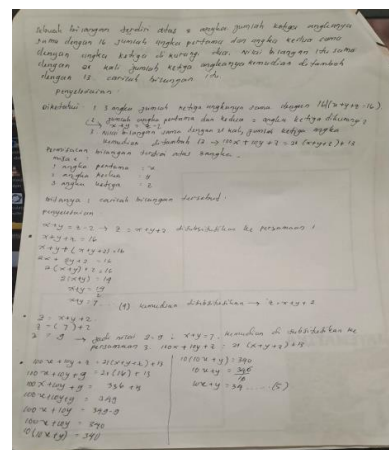 Sebuah bilangan terdiri atas 3 angka jumlah ketiga angkanya
sama dengan 16 jumlah angka pertama dan angka kedua sama
dengan angka ketiga dikurangi dua. Nilai bilangan itu sama
dengan 21 kali jumlah ketiga angkanya kemudian ditambah
dengan 13. carilah bilangan itu
penyelesaian
Diketahui : 1 3 angka jumlah ketiga angkanya sama dengan 16 (x+y+z=16).
2 jumlah angka pertama dan kedua = angka ketiga dikurangi 2
→ x+y = z-2
3. Nilai bilangan sama dengan 21 kali jumlah ketiga angka
kemudian ditambah 13 → 100x + 10y + z = 21 (x+y+z) + 13
Permisalan bilangan terdiri atas 3 angka.
misal :
1 angka pertama : x
2 angka kedua : y
3 angka ketiga : z
Ditanya : carilah bilangan tersebut.
penyelesaian
x+y = z-2 → z = x+y+2 disubstitusikan ke persamaan 1.
x+y+z = 16
x+y+(x+y+2) = 16
2x + 2y + 2 = 16
2(x+y)+2 = 16
2(x+y) = 14
x+y = 14
2
x+y = 7 ... (4) kemudian disubstitusikan → z = x+y+2
z = x+y+2
z = (7)+2
z = 9 → jadi nilai z=9 ; x+y=7. kemudian di substitusikan ke
persamaan 3. 100x + 10y + z = 21 (x+y+z) + 13
100x + 10y + z = 21(x+y+z) + 13
100x + 10y + 9 = 21(16) + 13
100x + 10y + 9 = 336 + 13
100x + 10y + 9 = 349
100x + 10y = 349-9
100x + 10y = 340
10(10x+y) = 340
10(10x+y) = 340
10x+y = 340
10
10x+y = 34 ..... (5)